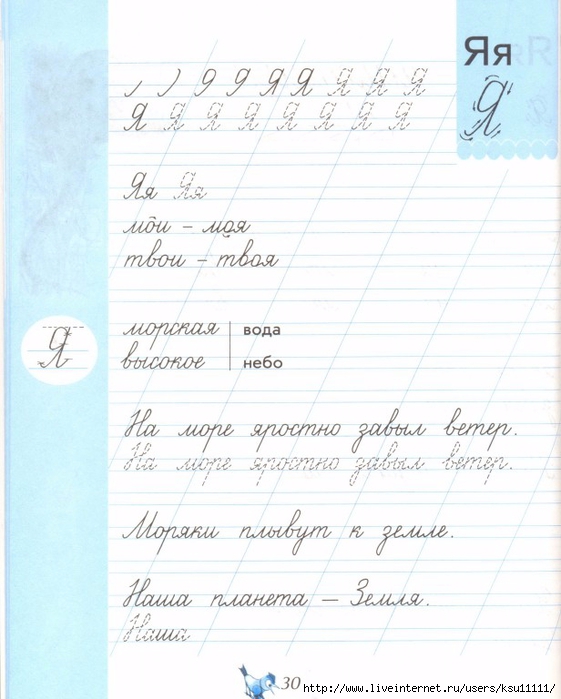 Яя
Я Я Я Я Я
Я
Я Я Я Я Я Я Я Я
Яя Яя
мои – моя
твои – твоя
морская вода
Я
высокое небо
На море яростно завыл ветер.
На море яростно завыл ветер.
Моряки плывут к земле.
Наша планета – Земля.
Наша
30
http://www.liveinternet.ru/users/ksu11111/